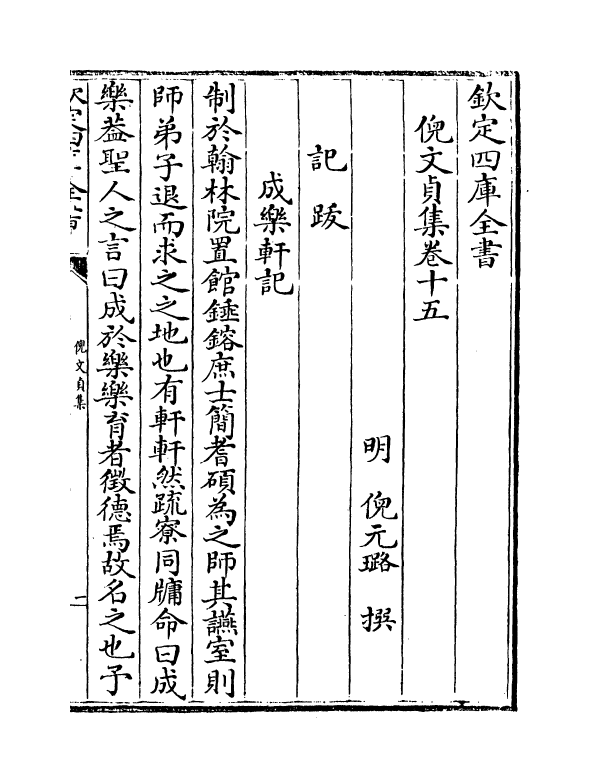 欽定四庫全書
倪文貞集卷十五
明 倪元璐 撰
記 跋
成樂軒記
制於翰林院置館錘鎔庶士簡耆碩為之師其讌室則
師弟子退而求之之地也有軒軒然疏寮同牗命曰成
樂葢聖人之言曰成於樂樂育者徵德焉故名之也予
欽定四庫全書
倪文貞集
二